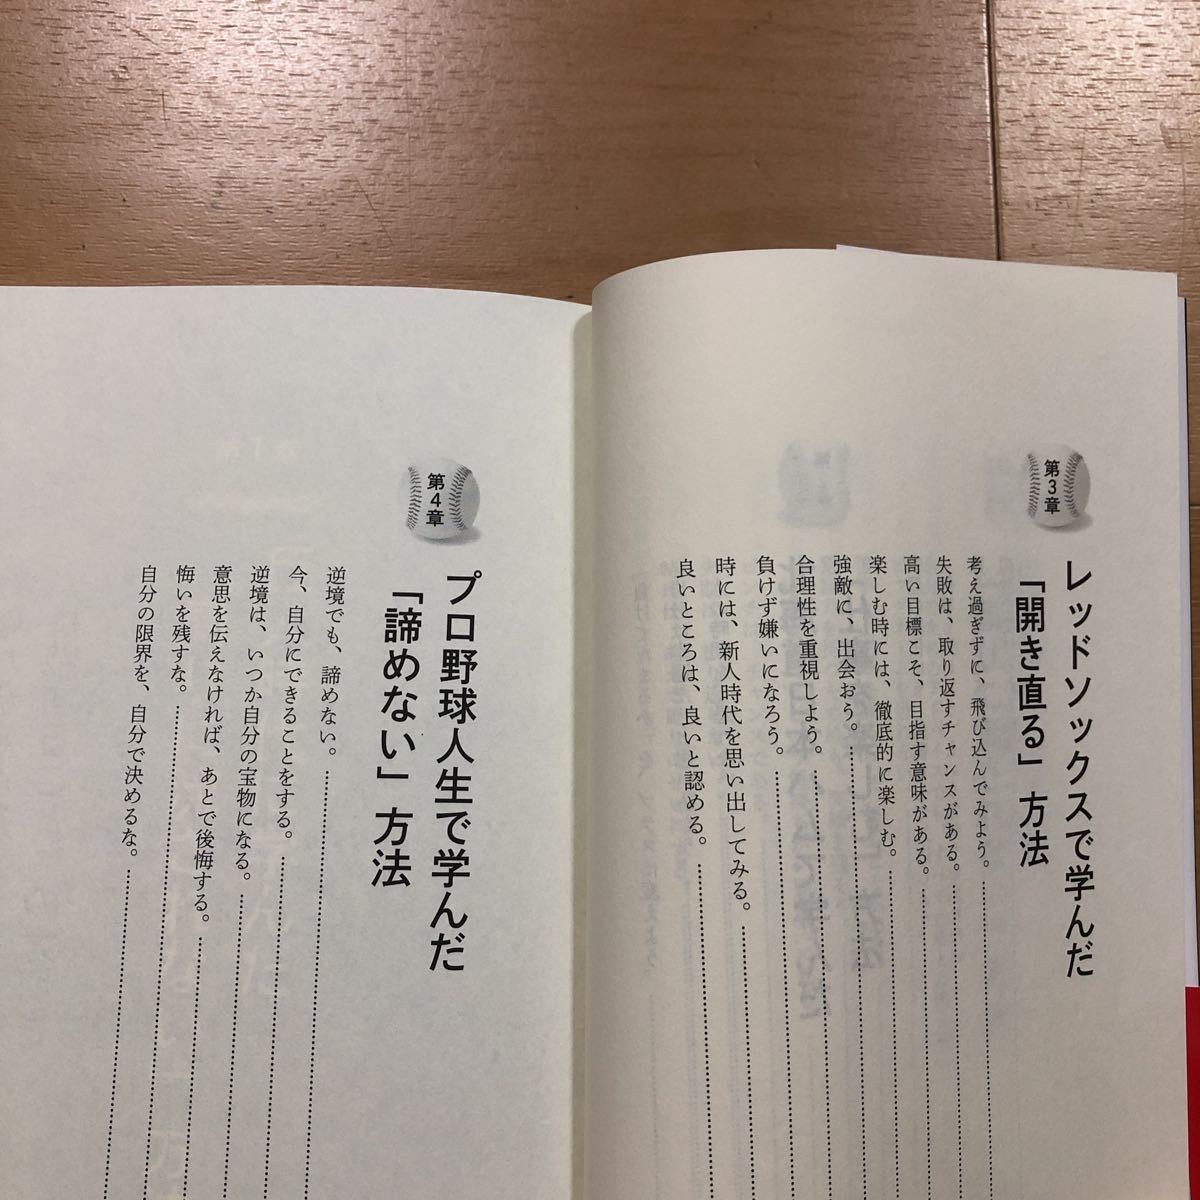 第3章
レッドソックスで学んだ
「開き直る」方法
考え過ぎずに、飛び込んでみよう。
失敗は、取り返すチャンスがある。
高い目標こそ、目指す意味がある。
楽しむ時には、徹底的に楽しむ。
強敵に、出会おう。
合理性を重視しよう。
負けず嫌いになろう。
時には、新人時代を思い出してみる。
良いところは、良いと認める。
第4章
プロ野球人生で学んだ
「諦めない」方法
逆境でも、諦めない。
今、自分にできることをする。
逆境は、いつか自分の宝物になる。
意思を伝えなければ、あとで後悔する。
悔いを残すな。
自分の限界を、自分で決めるな。